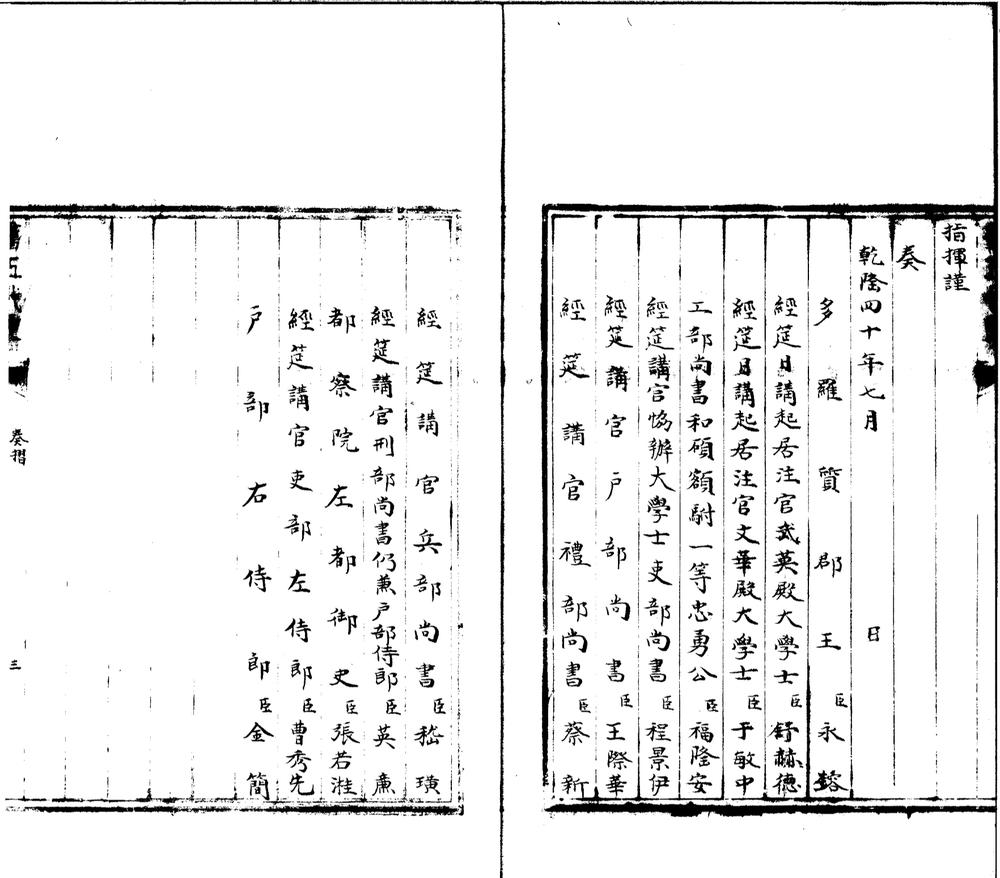 指揮謹
奏
乾隆四十年七月 日
多羅質郡王臣永瑢
經筵日講起居注官武英殿大學士臣舒赫德
經筵日講起居注官文華殿大學士臣于敏中
工部尚書和碩額駙一等忠勇公臣福隆安
經筵講官協辦大學士吏部尚書臣程景伊
經筵講官戶部尚書臣王際華
經筵講官禮部尚書臣蔡新
經筵講官兵部尚書臣嵇璜
經筵講官刑部尚書仍兼戶部侍郎臣英廉
都察院左都御史臣張若溎
經筵講官吏部左侍郎臣曹秀先
戶部右侍郎臣金簡
奏摺
三